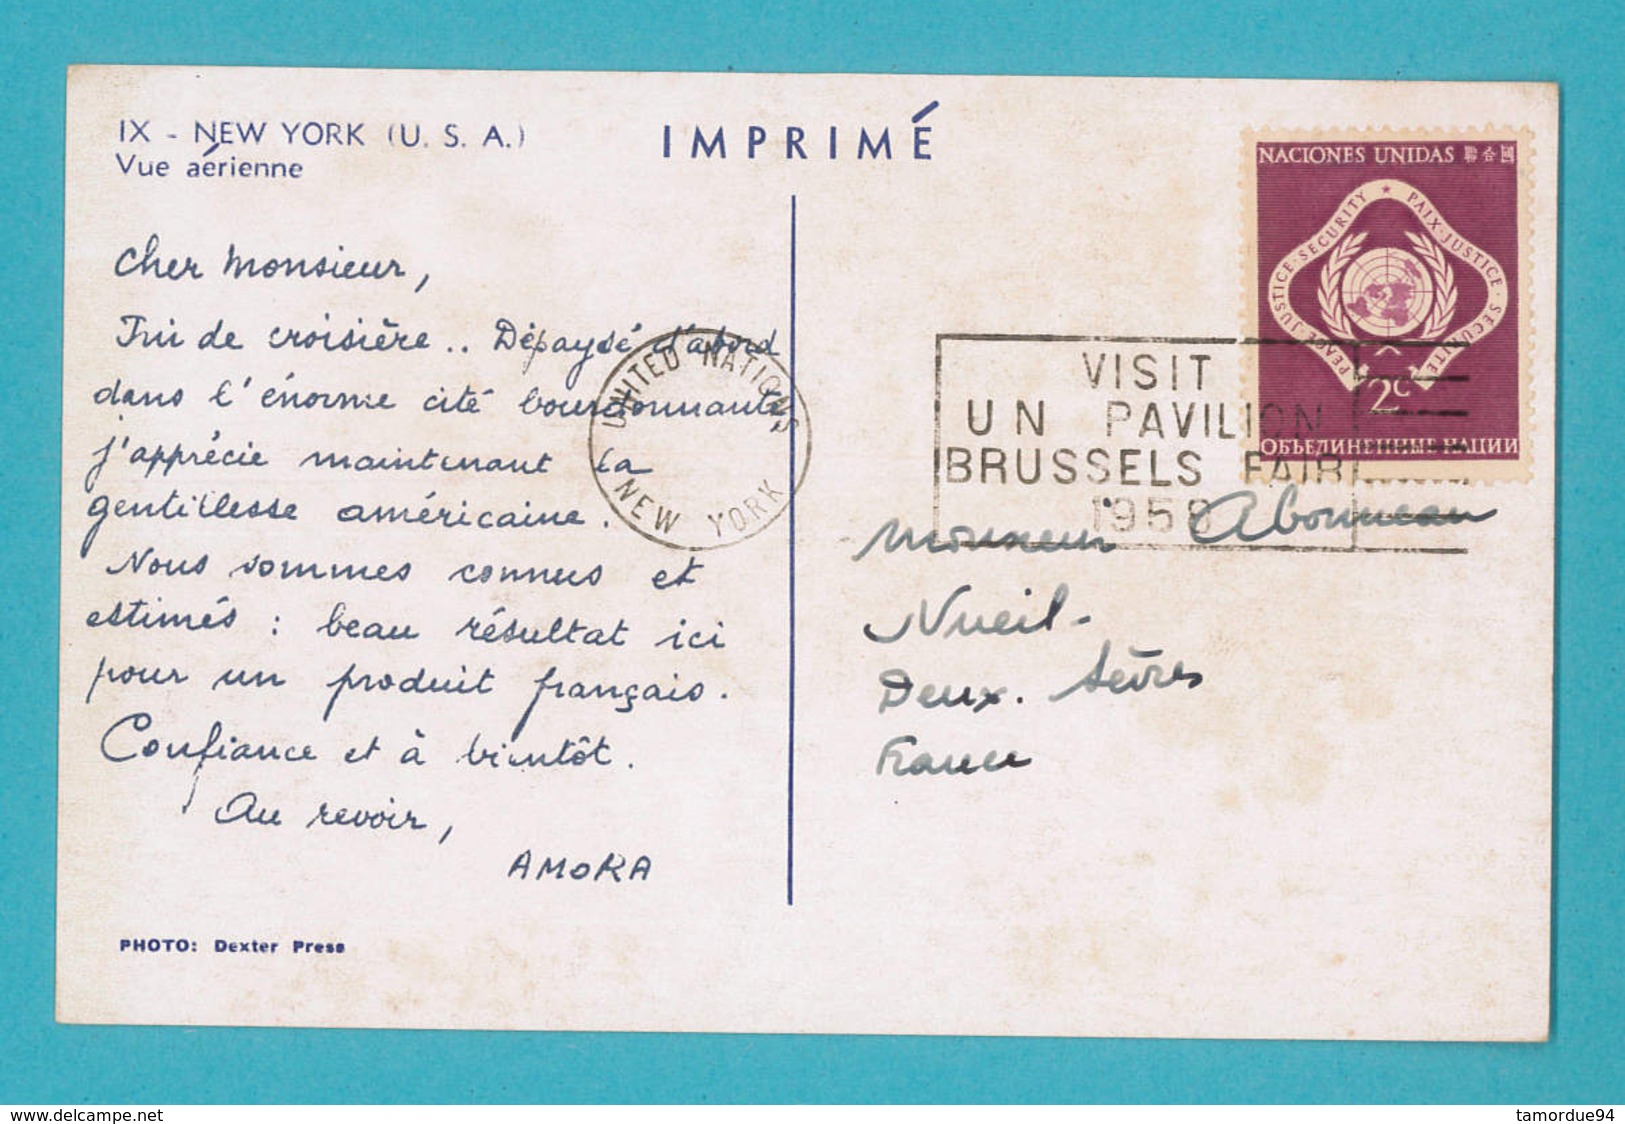 IX - NEW YORK (U. S. A.)
Vue aérienne
IMPRIMÉ
Cher Monsieur,
Fin de croisière.. Dépaysé d'abord
dans l'énorme cité bourdonnante,
j'apprécie maintenant la
gentillesse américaine.
Nous sommes connus et
estimés : beau résultat ici
pour un produit français.
Confiance et à bientôt.
Au revoir,
AMORA
PHOTO: Dexter Press
UNITED NATIONS
NEW YORK
VISIT
UN PAVILION
BRUSSELS FAIR
1958
NACIONES UNIDAS 聯合國
PEACE·JUSTICE·SECURITY ★ PAIX·JUSTICE·SECURITÉ
2c
ОБЪЕДИНЕННЫЕ НАЦИИ
Monsieur Abonneau
Nueil-
Deux. Sèvres
France
delcampe.net
tamordue94